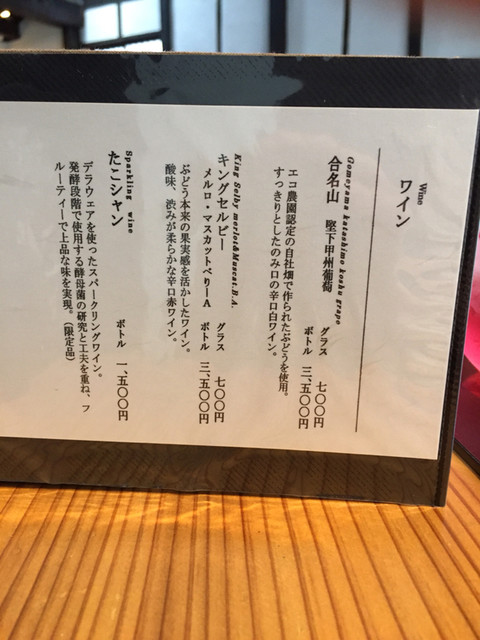 Wine
ワイン
Gomeyama katashimo koshu grape
合名山 堅下甲州葡萄
グラス 七〇〇円
ボトル 三、五〇〇円
エコ農園認定の自社畑で作られたぶどうを使用。
すっきりとしたのみ口の辛口白ワイン。
King Selby merlot&Muscat.B.A.
キングセルビー
メルロ・マスカットベリーA
グラス 七〇〇円
ボトル 三、五〇〇円
ぶどう本来の果実感を活かしたワイン。
酸味、渋みが柔らかな辛口赤ワイン。
Sparkling wine
たこシャン
ボトル 一、五〇〇円
デラウェアを使ったスパークリングワイン。
発酵段階で使用する酵母菌の研究と工夫を重ね、フ
ルーティーで上品な味を実現。（限定品）